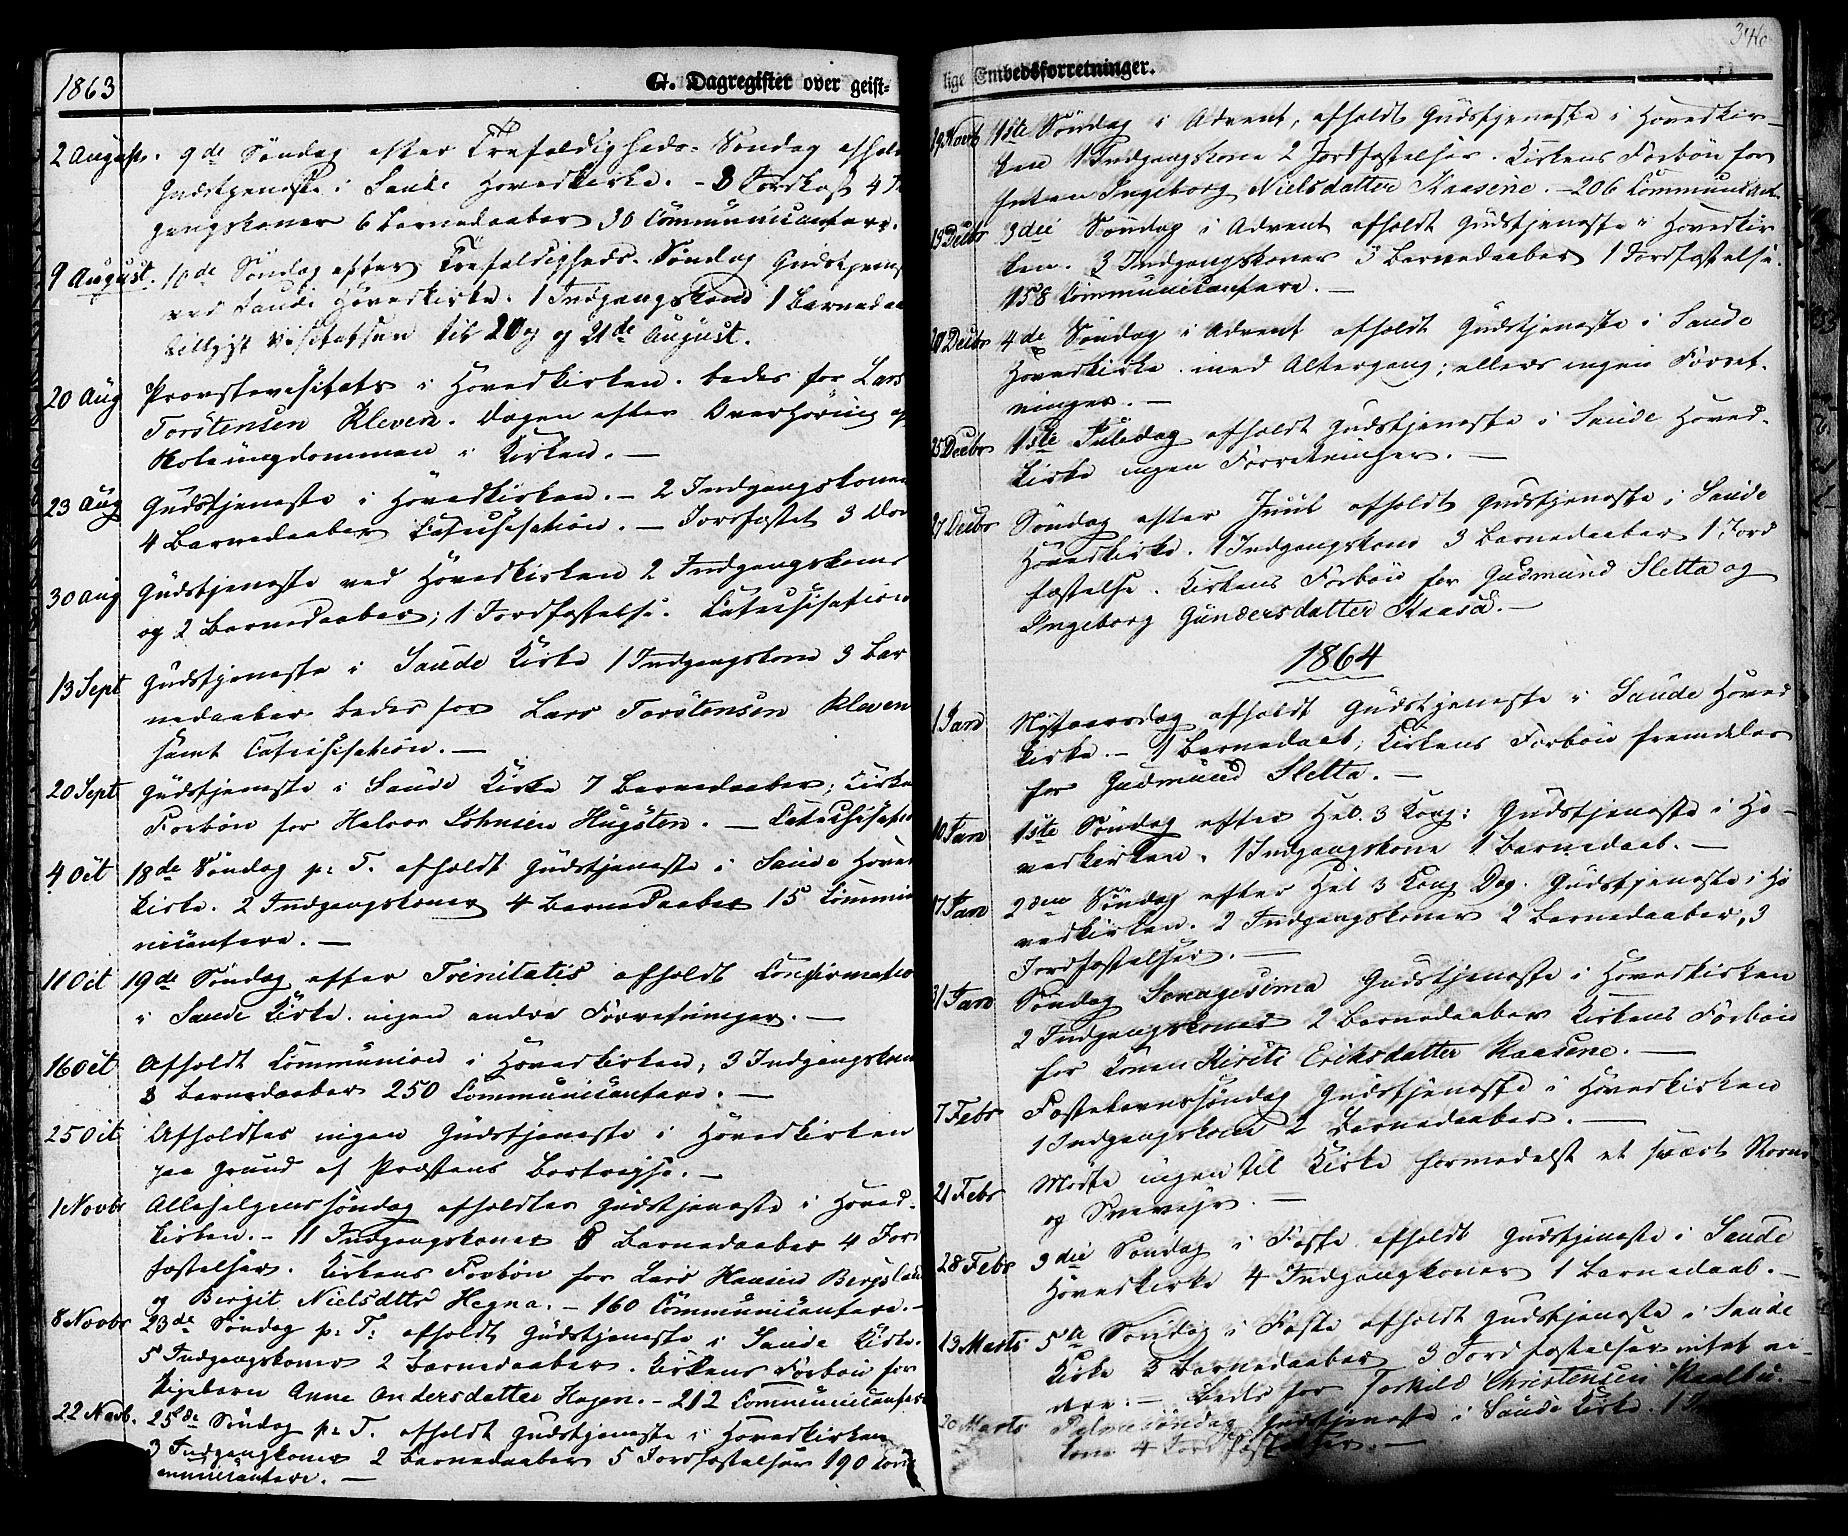 1863
G. Dagregister over geist-
2 August. 9de Søndag efter Trefoldigheds-Søndag afholdt
Gudstjeneste i Saude Hovedkirke. - 3 Jordkast 4 In
gangskoner 6 Barnedaaber 30 Communicantere.
9 August. 10de Søndag efter Trefoldigheds-Søndag Gudstjeneste
ved Saude Hovedkirke. 1 Indgangskone 1 Barnedaab
til 20 og 21de August.
20 Aug Provstevisitats i Hovedkirken. bedes for Lars
Torstensen Kleven. Dagen efter Overhøring af
i Kirken. —
23 Aug Gudstjeneste i Hovedkirken. - 2 Indgangskoner
4 Barnedaaber Catechisation. — Jordfæstet 3
30 Aug Gudstjeneste ved Hovedkirken 2 Indgangskoner
og 2 Barnedaaber; 1 Jordfæstelse. Catechisation
13 Sept Gudstjeneste i Saude Kirke 1 Indgangskone 3 Bar
nedaaber bedes for Lars Torstensen Kleven
samt Catechisation. —
20 Sept Gudstjeneste i Saude Kirke 7 Barnedaaber; Kirkens
Forbøn for Halvor Johnsen Hugsten. — Catechisation
4 Oct 18de Søndag p: T. afholdt Gudstjeneste i Saude Hoved
kirke. 2 Indgangskoner 4 Barnedaaber 15 Commu
nicantere. —
11 Oct 19de Søndag efter Trinitatis afholdt Confirmation
i Saude Kirke. ingen andre Forretninger. —
16 Oct Afholdt Communion i Hovedkirken; 3 Indgangskoner
3 Barnedaaber 250 Communicantere. —
25 Oct Afholdtes ingen Gudstjeneste i Hovedkirken
paa Grund af Præstens Bortreise. —
1 Novbr Allehelgenssøndag afholdtes Gudstjeneste i Hoved-
kirken. - 11 Indgangskoner 8 Barnedaaber 4 Jord
fæstelser. Kirkens Forbøn for Lars Hansen Bergsland
og Bergit Nielsdttr Hegna. - 160 Communicantere. -
8 Novbr 23de Søndag p: T: afholdt Gudstjeneste i Saude Kirke.
5 Indgangskoner 2 Barnedaaber. Kirkens Forbøn for
Pigebarn Anne Andersdatter Hagen. - 212 Communicantere
22 Novb. 25de Søndag p: T. afholdt Gudstjeneste i Hovedkirken
3 Indgangskoner 2 Barnedaaber 5 Jordfæstelser 190 Com
municantere. —
346
lige Embedsforretninger.
29 Novb 1ste Søndag i Advent, afholdt Gudstjeneste i Hovedkir-
ken 1 Indgangskone 2 Jordfæstelser. Kirkens Forbøn for
Ingeborg Nielsdatter Kaasene. - 206 Communicant.
13 Decbr 3die Søndag i Advent afholdt Gudstjeneste i Hovedkir
ken. 3 Indgangskoner 3 Barnedaaber 1 Jordfæstelse.
158 Communicantere. —
20 Decbr 4de Søndag i Advent afholdt Gudstjeneste i Saude
Hovedkirke med Altergang; ellers ingen Forret-
ninger. —
25 Decbr 1ste Juledag afholdt Gudstjeneste i Saude Hoved-
kirke ingen Forretninger. —
27 Decbr Søndag efter Juul afholdt Gudstjeneste i Saude
Hovedkirke. 1 Indgangskone 3 Barnedaaber 1 Jord
fæstelse. Kirkens Forbøn for Gudmund Sletta og
Ingeborg Gundersdatter Kaasa. —
1864
1 Jan Nytaarsdag afholdt Gudstjeneste i Saude Hoved
kirke. - 1 Barnedaab; Kirkens Forbøn fremdeles
for Gudmund Sletta. —
10 Jan 1ste Søndag efter Hel. 3 Kong: Gudstjeneste i Ho-
vedkirken. 1 Indgangskone 1 Barnedaab. —
17 Jan 2den Søndag efter Hel 3 Kong Dag. Gudstjeneste i Ho
vedkirken. 2 Indgangskoner 2 Barnedaaber, 3
Jordfæstelser. —
31 Jan Søndag Sexagesima Gudstjeneste i Hovedkirken
2 Indgangskoner 2 Barnedaaber Kirkens Forbøn
for Konen Kirsti Eriksdatter Kaasene. —
7 Febr Fastelavnssøndag Gudstjeneste i Hovedkirken
1 Indgangskone 2 Barnedaaber. —
21 Febr Mødte ingen til Kirke formedelst et svært Storm
og Sneveir. —
28 Febr 3die Søndag i Faste afholdt Gudstjeneste i Saude
Hovedkirke 4 Indgangskoner 1 Barnedaab. —
13 Marts 5te Søndag i Faste afholdt Gudstjeneste i Saude
Kirke 2 Barnedaaber 3 Jordfæstelser intet vi-
dere. — Bedes for Torkild Christensen Kaalbu. —
20 Marts Palmesøndag Gudstjeneste i Saude Kirke. 1
kone 4 Jordfæstelser. —